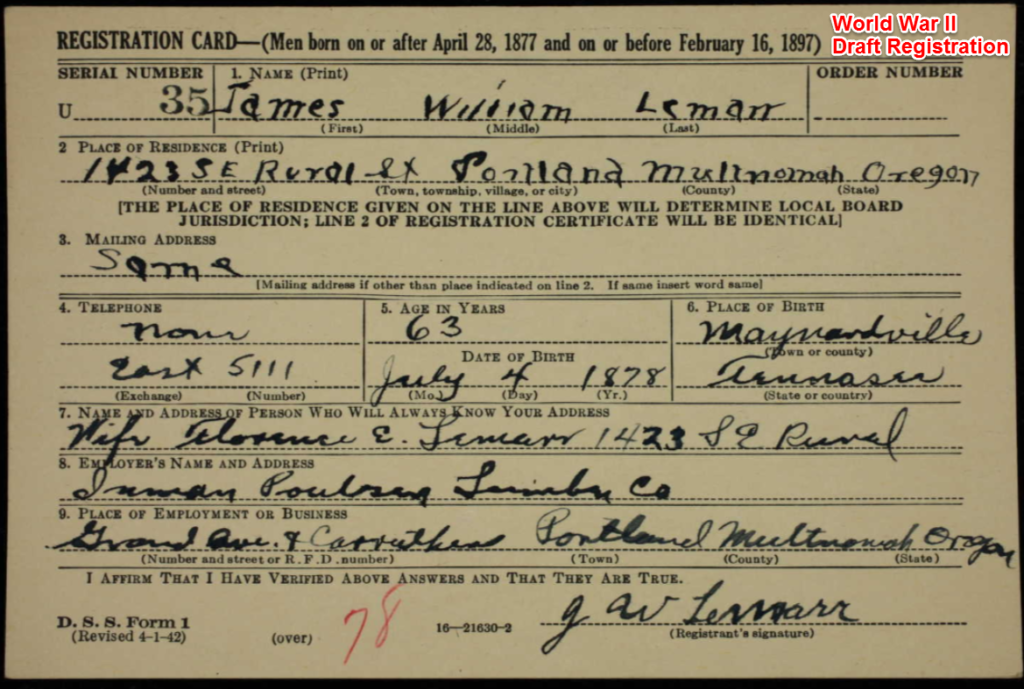 World War II
Draft Registration
REGISTRATION CARD—(Men born on or after April 28, 1877 and on or before February 16, 1897)
SERIAL NUMBER
1. NAME (Print)
ORDER NUMBER
U 35 James William Lemarr
(First) (Middle) (Last)
2 PLACE OF RESIDENCE (Print)
1423 SE Rural St Portland Multnomah Oregon
(Number and street) (Town, township, village, or city) (County) (State)
[THE PLACE OF RESIDENCE GIVEN ON THE LINE ABOVE WILL DETERMINE LOCAL BOARD
JURISDICTION; LINE 2 OF REGISTRATION CERTIFICATE WILL BE IDENTICAL]
3. MAILING ADDRESS
Same
[Mailing address if other than place indicated on line 2. If same insert word same]
4. TELEPHONE
5. AGE IN YEARS
6. PLACE OF BIRTH
None
63
Maynardville
DATE OF BIRTH
(Town or county)
East 5111
July 4 1878
Tennasee
(Exchange) (Number)
(Mo.) (Day) (Yr.)
(State or country)
7. NAME AND ADDRESS OF PERSON WHO WILL ALWAYS KNOW YOUR ADDRESS
Wife Florence E. Lemarr 1423 S E Rural
8. EMPLOYER'S NAME AND ADDRESS
Inman Poulsen Lumber Co
9. PLACE OF EMPLOYMENT OR BUSINESS
Grand Ave. & Carruthers Portland Multnomah Oregon
(Number and street or R. F. D. number) (Town) (County) (State)
I AFFIRM THAT I HAVE VERIFIED ABOVE ANSWERS AND THAT THEY ARE TRUE.
D. S. S. Form 1
(Revised 4-1-42)
(over)
78
16—21630-2
J W Lemarr
(Registrant's signature)